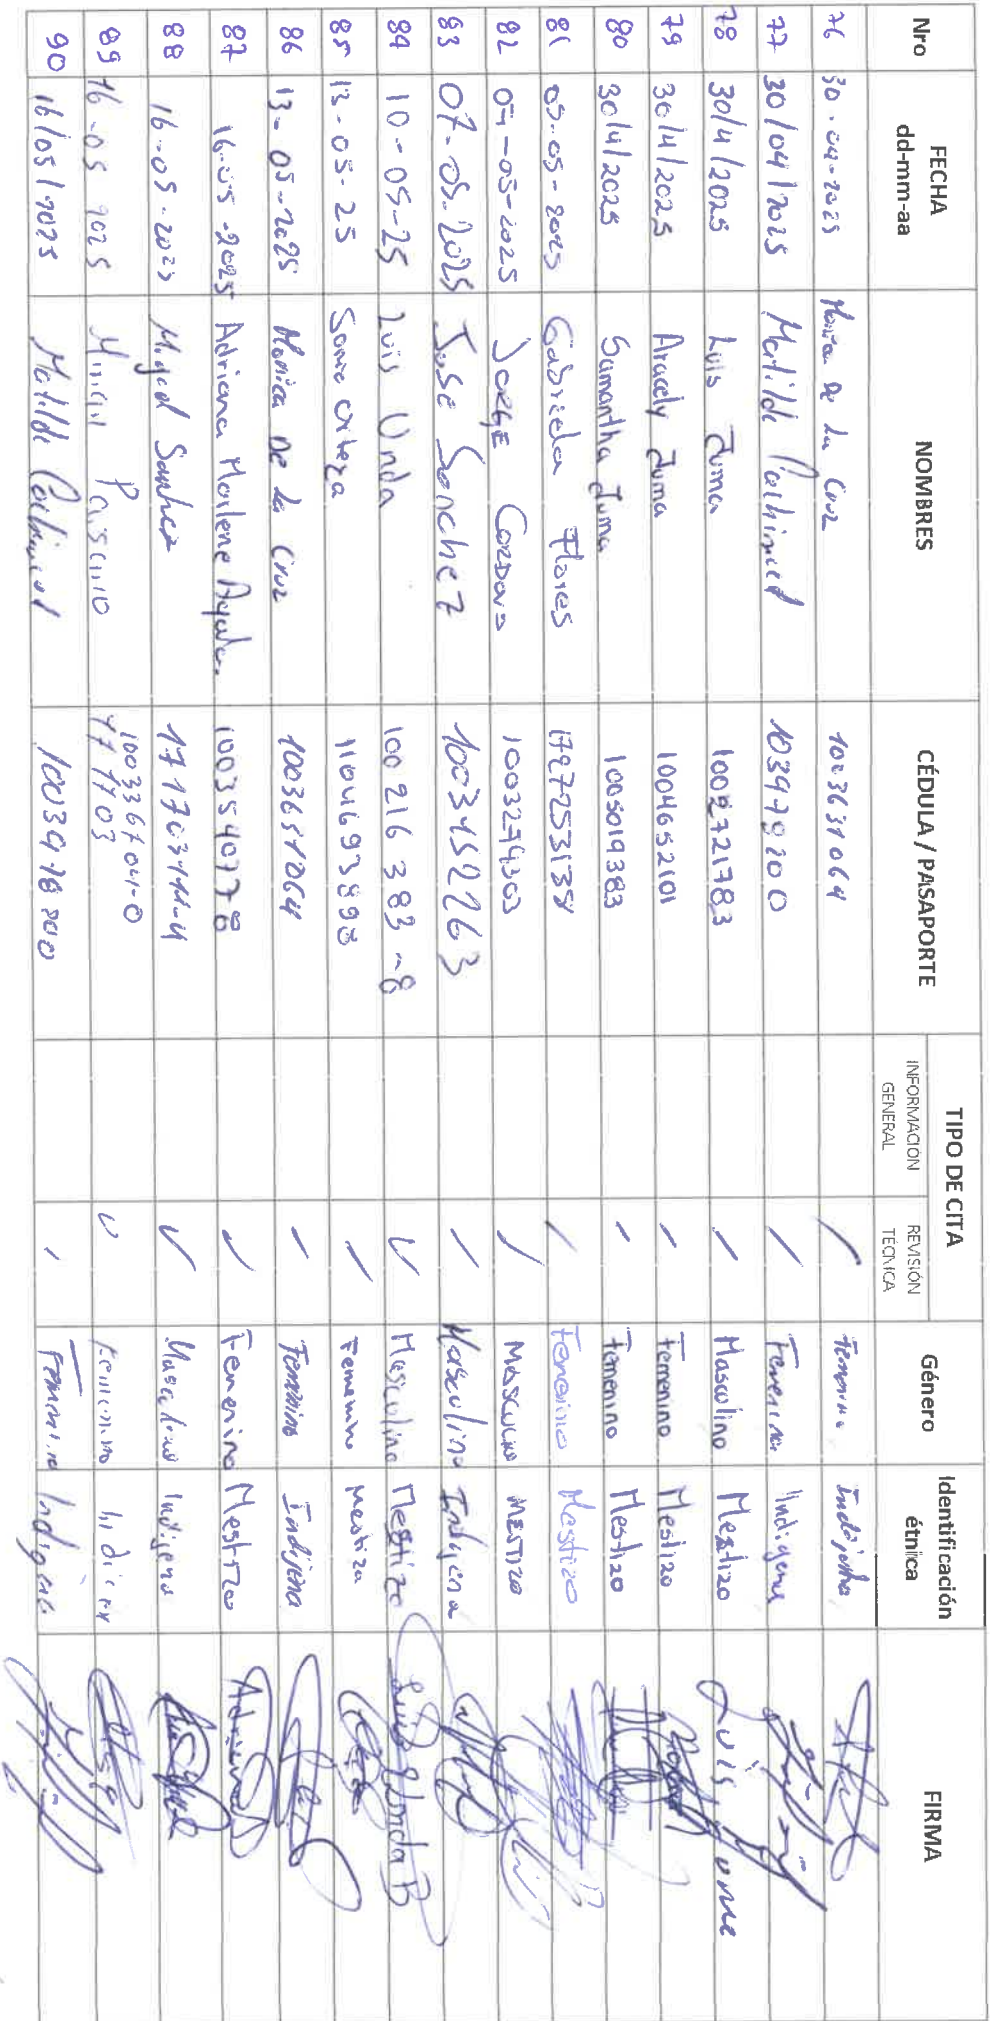 Nro FECHA dd-mm-aa NOMBRES CÉDULA / PASAPORTE TIPO DE CITA INFORMACIÓN GENERAL REVISIÓN TÉCNICA Género Identificación étnica FIRMA
76 30-04-2025 De La Cruz 1003631064 / Indijena
77 30/04/2025 Matilde 103978200 / Femenina Indigena
78 30/4/2025 Luis Juma 1002721783 / Masculino Mestizo
79 30/4/2025 Aracely Juma 1004652101 / Femenino Mestizo
80 30/4/2025 Samantha Juma 1005019383 / Femenino Mestizo
81 05-05-2025 Gabriela Flores 1727253135 / Femenino Mestizo
82 07-05-2025 JORGE CORDOVA 1003294303 / MASCULINO MESTIZO
83 07-05-2025 José Sanchez 1003452263 / Masculino Indigena
84 10-05-25 Luis Unda 100216383-8 ✓ Masculino Mestizo Luis Unda B
85 13-05-25 1104693898 / Femenino Mestiza
86 13-05-2025 Monica De la Cruz 1003631064 / Femenino Indijena
87 16-05-2025 Adriana Marlene Ayala 1003540778 ✓ Femenino Mestizo Adriana
88 16-05-2025 Miguel Sanchez ✓ Masculino Indigena
89 16-05 2025 100336704-0 ✓ Femenino
90 16/05/2025 Matilde / Femenina Indigena